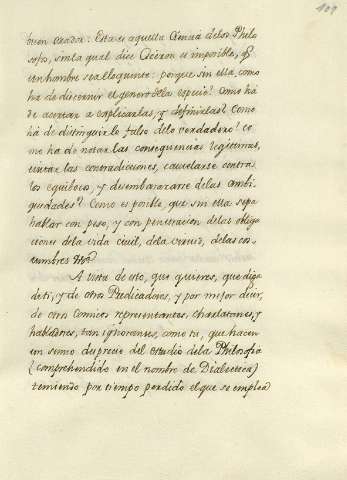 109
buen orador: Esta es aquella Ciencia de los Philo
sofos, sin la qual dice Ciceron es imposible, q̃
un hombre sea eloquente: porque sin ella, como
ha de discernir el genero de la especie? Como há
de acertar a explicarlas, y definirlas? Como
há de distinguir lo falso de lo verdadero? Co
mo ha de notar las consequencias legitimas,
evitar las contradicciones, cautelarse contra
los equibocos, y desembarazarse de las ambi
guedades? Como es posible, que sin ella sepa
hablar con peso, y con penetracion de las obliga
ciones de la vida civil, de la virtud, de las cos
tumbres &ra?
A vista de esto, que quieres, que diga
de ti, y de otros Predicadores, y por mejor decir,
de otros comicos representantes, charlatanes, y
habladores, tan ignorantes, como tu, que hacen
un sumo desprecio del estudio de la Philosofia
(comprehendido en el nombre de Dialectica)
teniendo por tiempo perdido el que se emplea